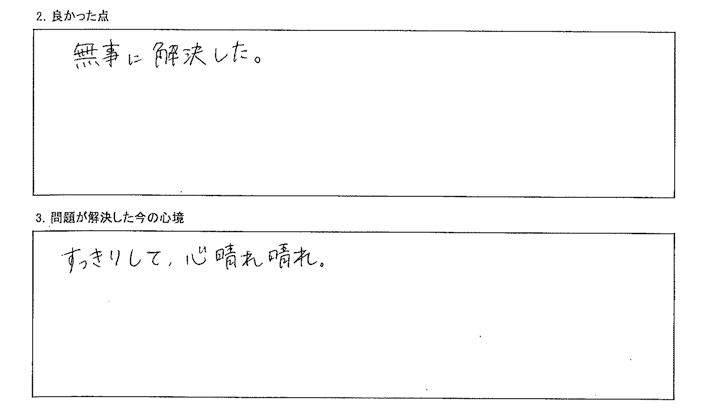 2. 良かった点
無事に解決した。
3. 問題が解決した今の心境
すっきりして、心晴れ晴れ。